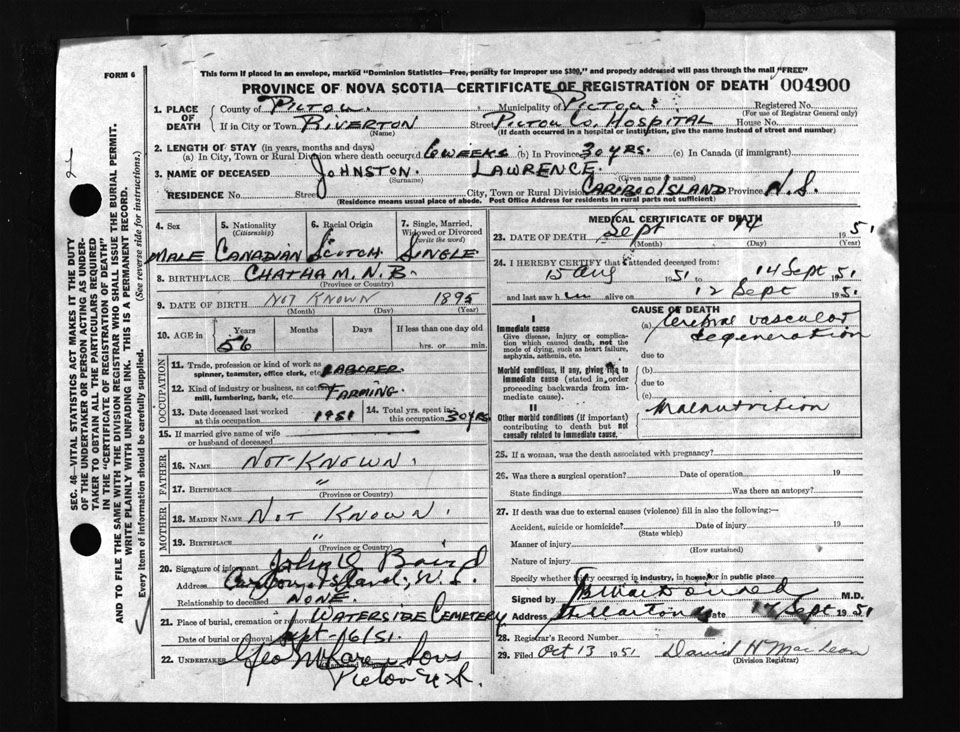 FORM 6
This form if placed in an envelope, marked "Dominion Statistics—Free, penalty for improper use $300," and properly addressed will pass through the mail "FREE"
PROVINCE OF NOVA SCOTIA—CERTIFICATE OF REGISTRATION OF DEATH 004900
1. PLACE OF DEATH
County of PICTOU. Municipality of PICTOU. Registered No.
(For use of Registrar General only)
If in City or Town RIVERTON Street PICTOU CO. HOSPITAL House No.
(Name) (If death occurred in a hospital or institution, give the name instead of street and number)
2. LENGTH OF STAY (in years, months and days)
(a) In City, Town or Rural Division where death occurred 6 WEEKS (b) In Province 30 YRS. (c) In Canada (if immigrant)
3. NAME OF DECEASED JOHNSTON. LAWRENCE.
(Surname) (Given name or names)
RESIDENCE No. Street City, Town or Rural Division CARIBOO ISLAND Province N.S.
(Residence means usual place of abode. Post Office Address for residents in rural parts not sufficient)
4. Sex 5. Nationality (Citizenship) 6. Racial Origin 7. Single, Married, Widowed or Divorced (Write the word)
MALE CANADIAN SCOTCH SINGLE
8. BIRTHPLACE CHATHAM. N.B.
(Province or Country)
9. DATE OF BIRTH NOT KNOWN 1895
(Month) (Day) (Year)
10. AGE in Years Months Days If less than one day old
56 hrs. or min.
OCCUPATION
11. Trade, profession or kind of work as spinner, teamster, office clerk, etc. LABORER.
12. Kind of industry or business, as cotton mill, lumbering, bank, etc. FARMING
13. Date deceased last worked at this occupation 1951 14. Total yrs. spent in this occupation 30 YRS
15. If married give name of wife or husband of deceased
FATHER
16. NAME NOT KNOWN.
17. BIRTHPLACE "
(Province or Country)
MOTHER
18. MAIDEN NAME NOT KNOWN.
19. BIRTHPLACE "
(Province or Country)
20. Signature of informant John D Baird
Address Island, N.S.
Relationship to deceased NONE.
21. Place of burial, cremation or removal WATERSIDE CEMETERY
Date of burial or removal Sept-16/51.
22. UNDERTAKER Geo Sons
Pictou N.S.
MEDICAL CERTIFICATE OF DEATH
23. DATE OF DEATH Sept 14 1951
(Month) (Day) (Year)
24. I HEREBY CERTIFY that I attended deceased from:
15 Aug 1951 to 14 Sept 1951
and last saw him alive on 12 Sept 1951
CAUSE OF DEATH
I
Immediate cause
Give disease, injury or complication which caused death, not the mode of dying, such as heart failure, asphyxia, asthenia, etc.
(a) Cerebral vascular degeneration
due to
Morbid conditions, if any, giving rise to immediate cause (stated in order proceeding backwards from immediate cause).
(b)
due to
(c)
II
Other morbid conditions (if important) contributing to death but not causally related to immediate cause.
Malnutrition
25. If a woman, was the death associated with pregnancy?
26. Was there a surgical operation? Date of operation 19
State findings Was there an autopsy?
27. If death was due to external causes (violence) fill in also the following:—
Accident, suicide or homicide? Date of injury 19
(State which)
Manner of injury
(How sustained)
Nature of injury
Specify whether injury occurred in industry, in home, or in public place
Signed by MacDonald M.D.
Address Stellarton Date 17 Sept 1951
28. Registrar's Record Number
29. Filed Oct 13 1951 David H MacLean
(Division Registrar)
SEC. 46—VITAL STATISTICS ACT MAKES IT THE DUTY
OF THE UNDERTAKER OR PERSON ACTING AS UNDER-
TAKER TO OBTAIN ALL THE PARTICULARS REQUIRED
IN THE "CERTIFICATE OF REGISTRATION OF DEATH"
AND TO FILE THE SAME WITH THE DIVISION REGISTRAR WHO SHALL ISSUE THE BURIAL PERMIT.
WRITE PLAINLY WITH UNFADING INK. THIS IS A PERMANENT RECORD.
Every item of information should be carefully supplied. (See reverse side for instructions.)